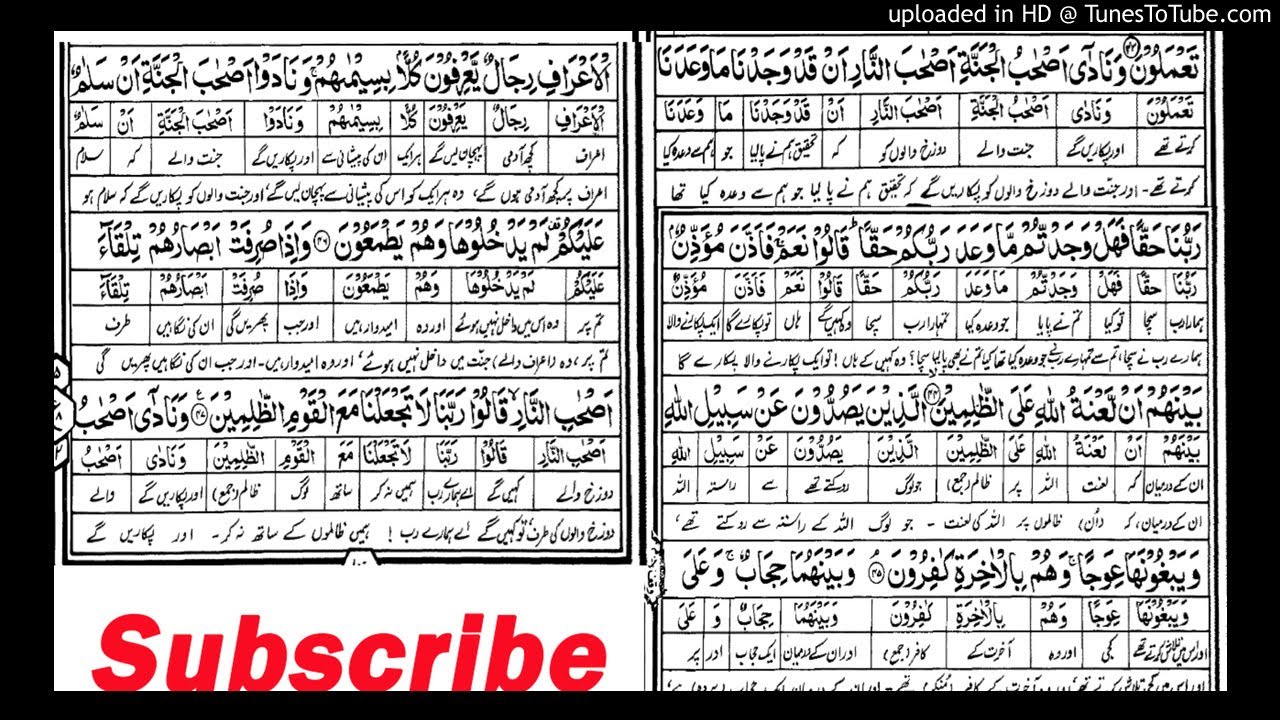 uploaded in HD @ TunesToTube.com
تَعْمَلُوْنَ ﴿۴۳﴾ وَنَادٰٓى اَصْحٰبُ الْجَنَّةِ اَصْحٰبَ النَّارِ اَنْ قَدْ وَجَدْنَا مَا وَعَدَنَا
تَعْمَلُوْنَ وَنَادٰٓى اَصْحٰبُ الْجَنَّةِ اَصْحٰبَ النَّارِ اَنْ قَدْ وَجَدْنَا مَا وَعَدَنَا
کرتے تھے اور پکاریں گے جنت والے دوزخ والوں کو کہ تحقیق ہم نے پالیا جو ہم سے وعدہ کیا
کرتے تھے۔ اور جنت والے دوزخ والوں کو پکاریں گے کہ تحقیق ہم نے پا لیا جو ہم سے وعدہ کیا تھا
رَبُّنَا حَقًّا فَهَلْ وَجَدْتُّمْ مَّا وَعَدَ رَبُّكُمْ حَقًّا ؕ قَالُوْا نَعَمْ ۚ فَاَذَّنَ مُؤَذِّنٌۢ
رَبُّنَا حَقًّا فَهَلْ وَجَدْتُّمْ مَا وَعَدَ رَبُّكُمْ حَقًّا قَالُوْا نَعَمْ فَاَذَّنَ مُؤَذِّنٌ
ہمارا رب سچا تو کیا تم نے پایا جو وعدہ کیا تمہارا رب سچا وہ کہیں گے ہاں تو پکارے گا ایک پکارنے والا
ہمارے رب نے سچا، تم سے تمہارے رب نے جو وعدہ کیا تھا کیا تم نے بھی پا لیا سچا؟ وہ کہیں گے ہاں! تو ایک پکارنے والا پکارے گا
بَيْنَهُمْ اَنْ لَّعْنَةُ اللّٰهِ عَلَى الظّٰلِمِيْنَ ﴿۴۴﴾ الَّذِيْنَ يَصُدُّوْنَ عَنْ سَبِيْلِ اللّٰهِ
بَيْنَهُمْ اَنْ لَعْنَةُ اللّٰهِ عَلَى الظّٰلِمِيْنَ الَّذِيْنَ يَصُدُّوْنَ عَنْ سَبِيْلِ اللّٰهِ
ان کے درمیان کہ لعنت اللہ پر ظالم (جمع) جو لوگ روکتے تھے سے راستہ اللہ
ان کے درمیان، کہ (ان) ظالموں پر اللہ کی لعنت ۔ جو لوگ اللہ کے راستہ سے روکتے تھے،
وَيَبْغُوْنَهَا عِوَجًا ۚ وَهُمْ بِالْاٰخِرَةِ كٰفِرُوْنَ ﴿۴۵﴾ وَبَيْنَهُمَا حِجَابٌ ۚ وَعَلَى
وَيَبْغُوْنَهَا عِوَجًا وَهُمْ بِالْاٰخِرَةِ كٰفِرُوْنَ وَبَيْنَهُمَا حِجَابٌ وَ عَلَى
اور اس میں تلاش کرتے تھے کجی اور وہ آخرت کے کافر (جمع) اور ان کے درمیان ایک حجاب اور پر
الْاَعْرَافِ رِجَالٌ يَّعْرِفُوْنَ كُلًّاۢ بِسِيْمٰىهُمْ ۚ وَنَادَوْا اَصْحٰبَ الْجَنَّةِ اَنْ سَلٰمٌ
الْاَعْرَافِ رِجَالٌ يَعْرِفُوْنَ كُلًّا بِسِيْمٰىهُمْ وَنَادَوْا اَصْحٰبَ الْجَنَّةِ اَنْ سَلٰمٌ
اعراف کچھ آدمی پہچان لیں گے ہر ایک ان کی پیشانی سے اور پکاریں گے جنت والے کہ سلام
اعراف پر کچھ آدمی ہوں گے، وہ ہر ایک کو اس کی پیشانی سے پہچان لیں گے اور جنت والوں کو پکاریں گے کہ سلام ہو
عَلَيْكُمْ ۫ لَمْ يَدْخُلُوْهَا وَهُمْ يَطْمَعُوْنَ ﴿۴۶﴾ وَاِذَا صُرِفَتْ اَبْصَارُهُمْ تِلْقَآءَ
عَلَيْكُمْ لَمْ يَدْخُلُوْهَا وَهُمْ يَطْمَعُوْنَ وَاِذَا صُرِفَتْ اَبْصَارُهُمْ تِلْقَآءَ
تم پر وہ اس میں داخل نہیں ہوئے اور وہ امیدوار ہیں اور جب پھریں گی ان کی نگاہیں طرف
تم پر، وہ (اعراف والے) جنت میں داخل نہیں ہوئے، اور وہ امیدوار ہیں۔ اور جب ان کی نگاہیں پھریں گی
اَصْحٰبِ النَّارِ ۙ قَالُوْا رَبَّنَا لَا تَجْعَلْنَا مَعَ الْقَوْمِ الظّٰلِمِيْنَ ﴿۴۷﴾ وَنَادٰٓى اَصْحٰبُ
اَصْحٰبِ النَّارِ قَالُوْا رَبَّنَا لَا تَجْعَلْنَا مَعَ الْقَوْمِ الظّٰلِمِيْنَ وَنَادٰى اَصْحٰبُ
دوزخ والے کہیں گے اے ہمارے رب ہمیں نہ کر ساتھ لوگ ظالم (جمع) اور پکاریں گے والے
دوزخ والوں کی طرف تو کہیں گے اے ہمارے رب! ہمیں ظالموں کے ساتھ نہ کر۔ اور پکاریں گے
Subscribe